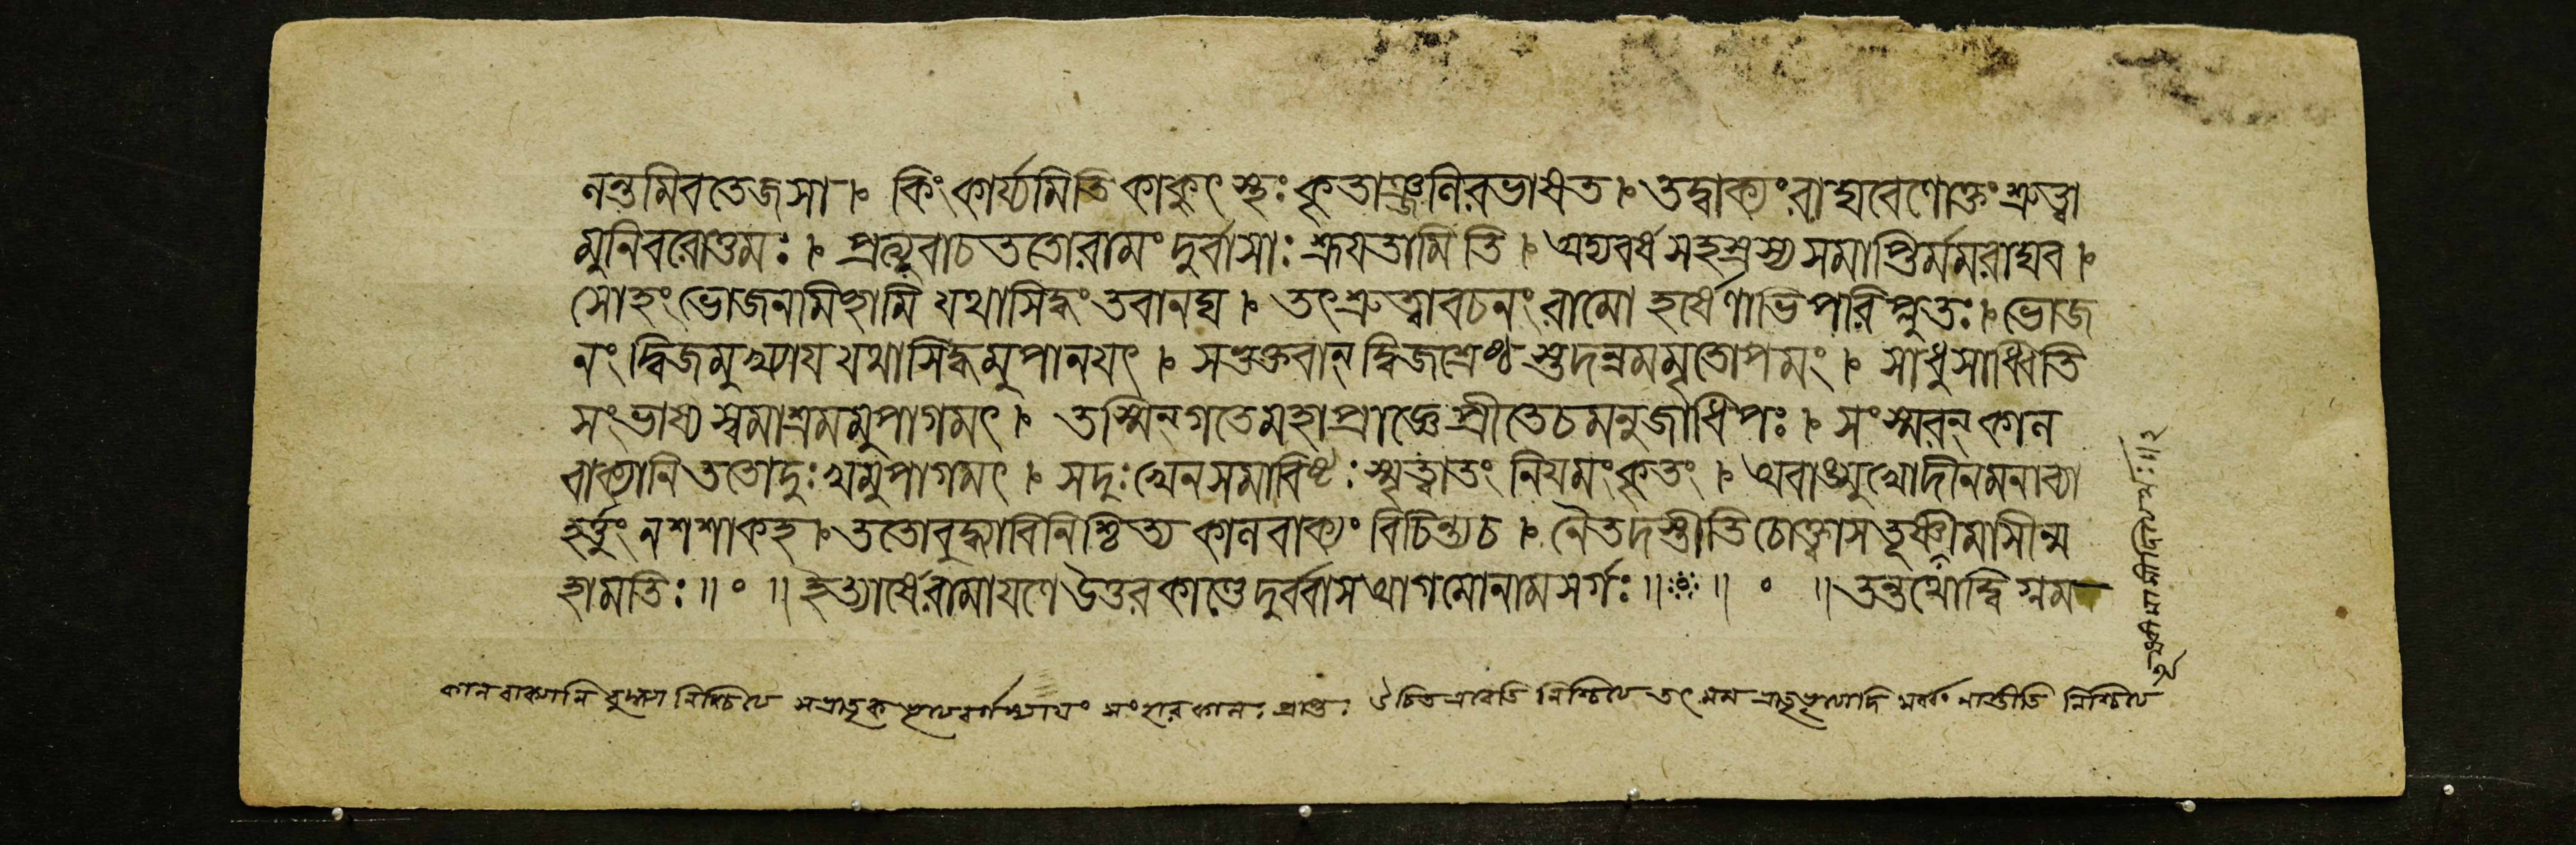 লন্তমিবতেজসা । কিংকার্য্যমিতিকাকুৎস্থঃকৃতাঞ্জলিরভাষত । তদ্বাক্যংরাঘবেণোক্তংশ্রুত্বা
মুনিবরোত্তমঃ । প্রত্যুবাচততোরামংদুর্বাসাঃশ্রূয়তামিতি । অদ্যবর্ষসহস্রস্যসমাপ্তির্মমরাঘব ।
সোহংভোজনমিচ্ছামি যথাসিদ্ধংতবানঘ । তৎশ্রুত্বাবচনংরামো হর্ষেণাভিপরিপ্লুতঃ । ভোজ
নংদ্বিজমুখ্যায়যথাসিদ্ধমুপানয়ৎ । সতুভুক্তবান্দ্বিজশ্রেষ্ঠস্তদন্নমমৃতোপমং । সাধুসাধ্বিতি
সংভাষ্যস্বমাশ্রমমুপাগমৎ । তস্মিন্গতেমহাপ্রাজ্ঞেপ্রীতেচমনুজাধিপঃ । সংস্মরন্কাল
বাক্যানিততোদুঃখমুপাগমৎ । সদুঃখেনসমাবিষ্টঃস্মৃত্বাতংনিয়মংকৃতং । অবাঙ্মুখোদীনমনাব্যা
হর্ত্তুংনশশাকহ । ততোবুদ্ধ্যাবিনিশ্চিত্যকালবাক্যংবিচিন্ত্যচ । নৈতদস্তীতিচোক্ত্বাসতূষ্ণীমাসীন্ম
হামতিঃ॥ ॰ ॥ইত্যার্ষেরামায়ণেউত্তরকাণ্ডেদুর্ব্বাসআগমোনামসর্গঃ॥ ॥ ॰ ॥
কালবাক্যানি বুদ্ধ্যা নিশ্চিত্য সংহারকালঃ প্রাপ্তঃ উচিত এবেতি নিশ্চিত্য নাস্তীতি নিশ্চিত্য